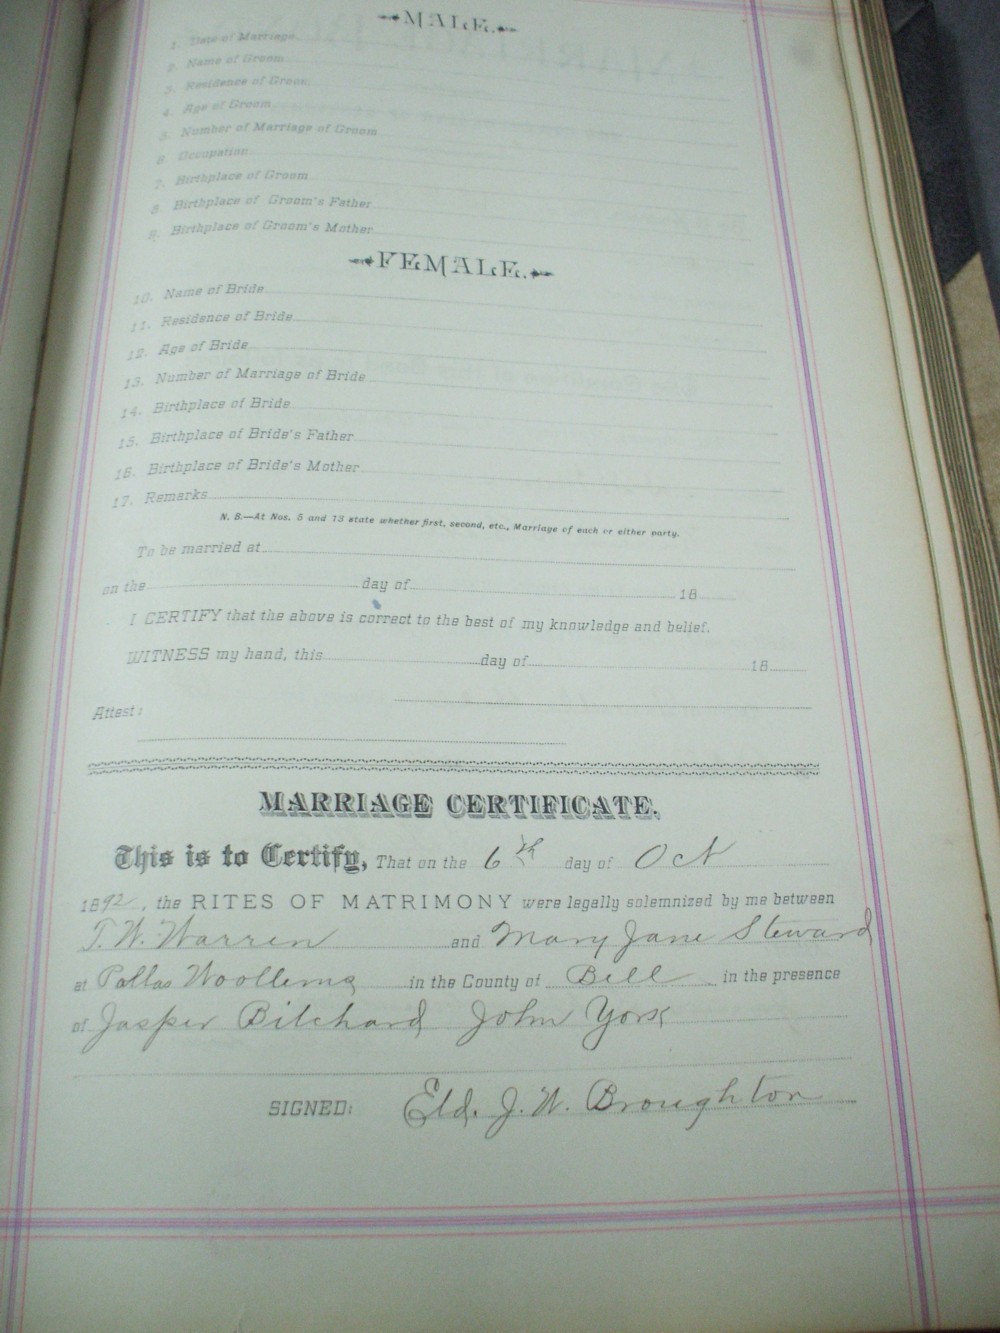 MALE.
1. Date of Marriage
2. Name of Groom
3. Residence of Groom
4. Age of Groom
5. Number of Marriage of Groom
6. Occupation
7. Birthplace of Groom
8. Birthplace of Groom's Father
9. Birthplace of Groom's Mother
FEMALE.
10. Name of Bride
11. Residence of Bride
12. Age of Bride
13. Number of Marriage of Bride
14. Birthplace of Bride
15. Birthplace of Bride's Father
16. Birthplace of Bride's Mother
17. Remarks
N. B.—At Nos. 5 and 13 state whether first, second, etc., Marriage of each or either party.
To be married at
on the day of 18
I CERTIFY that the above is correct to the best of my knowledge and belief.
WITNESS my hand, this day of 18
Attest:
MARRIAGE CERTIFICATE.
This is to Certify, That on the 6th day of Oct
1892, the RITES OF MATRIMONY were legally solemnized by me between
T. W. Warren and Mary Jane Steward
at Pallas in the County of Bell in the presence
of Jasper John York
SIGNED: Eld. J. W. Broughton